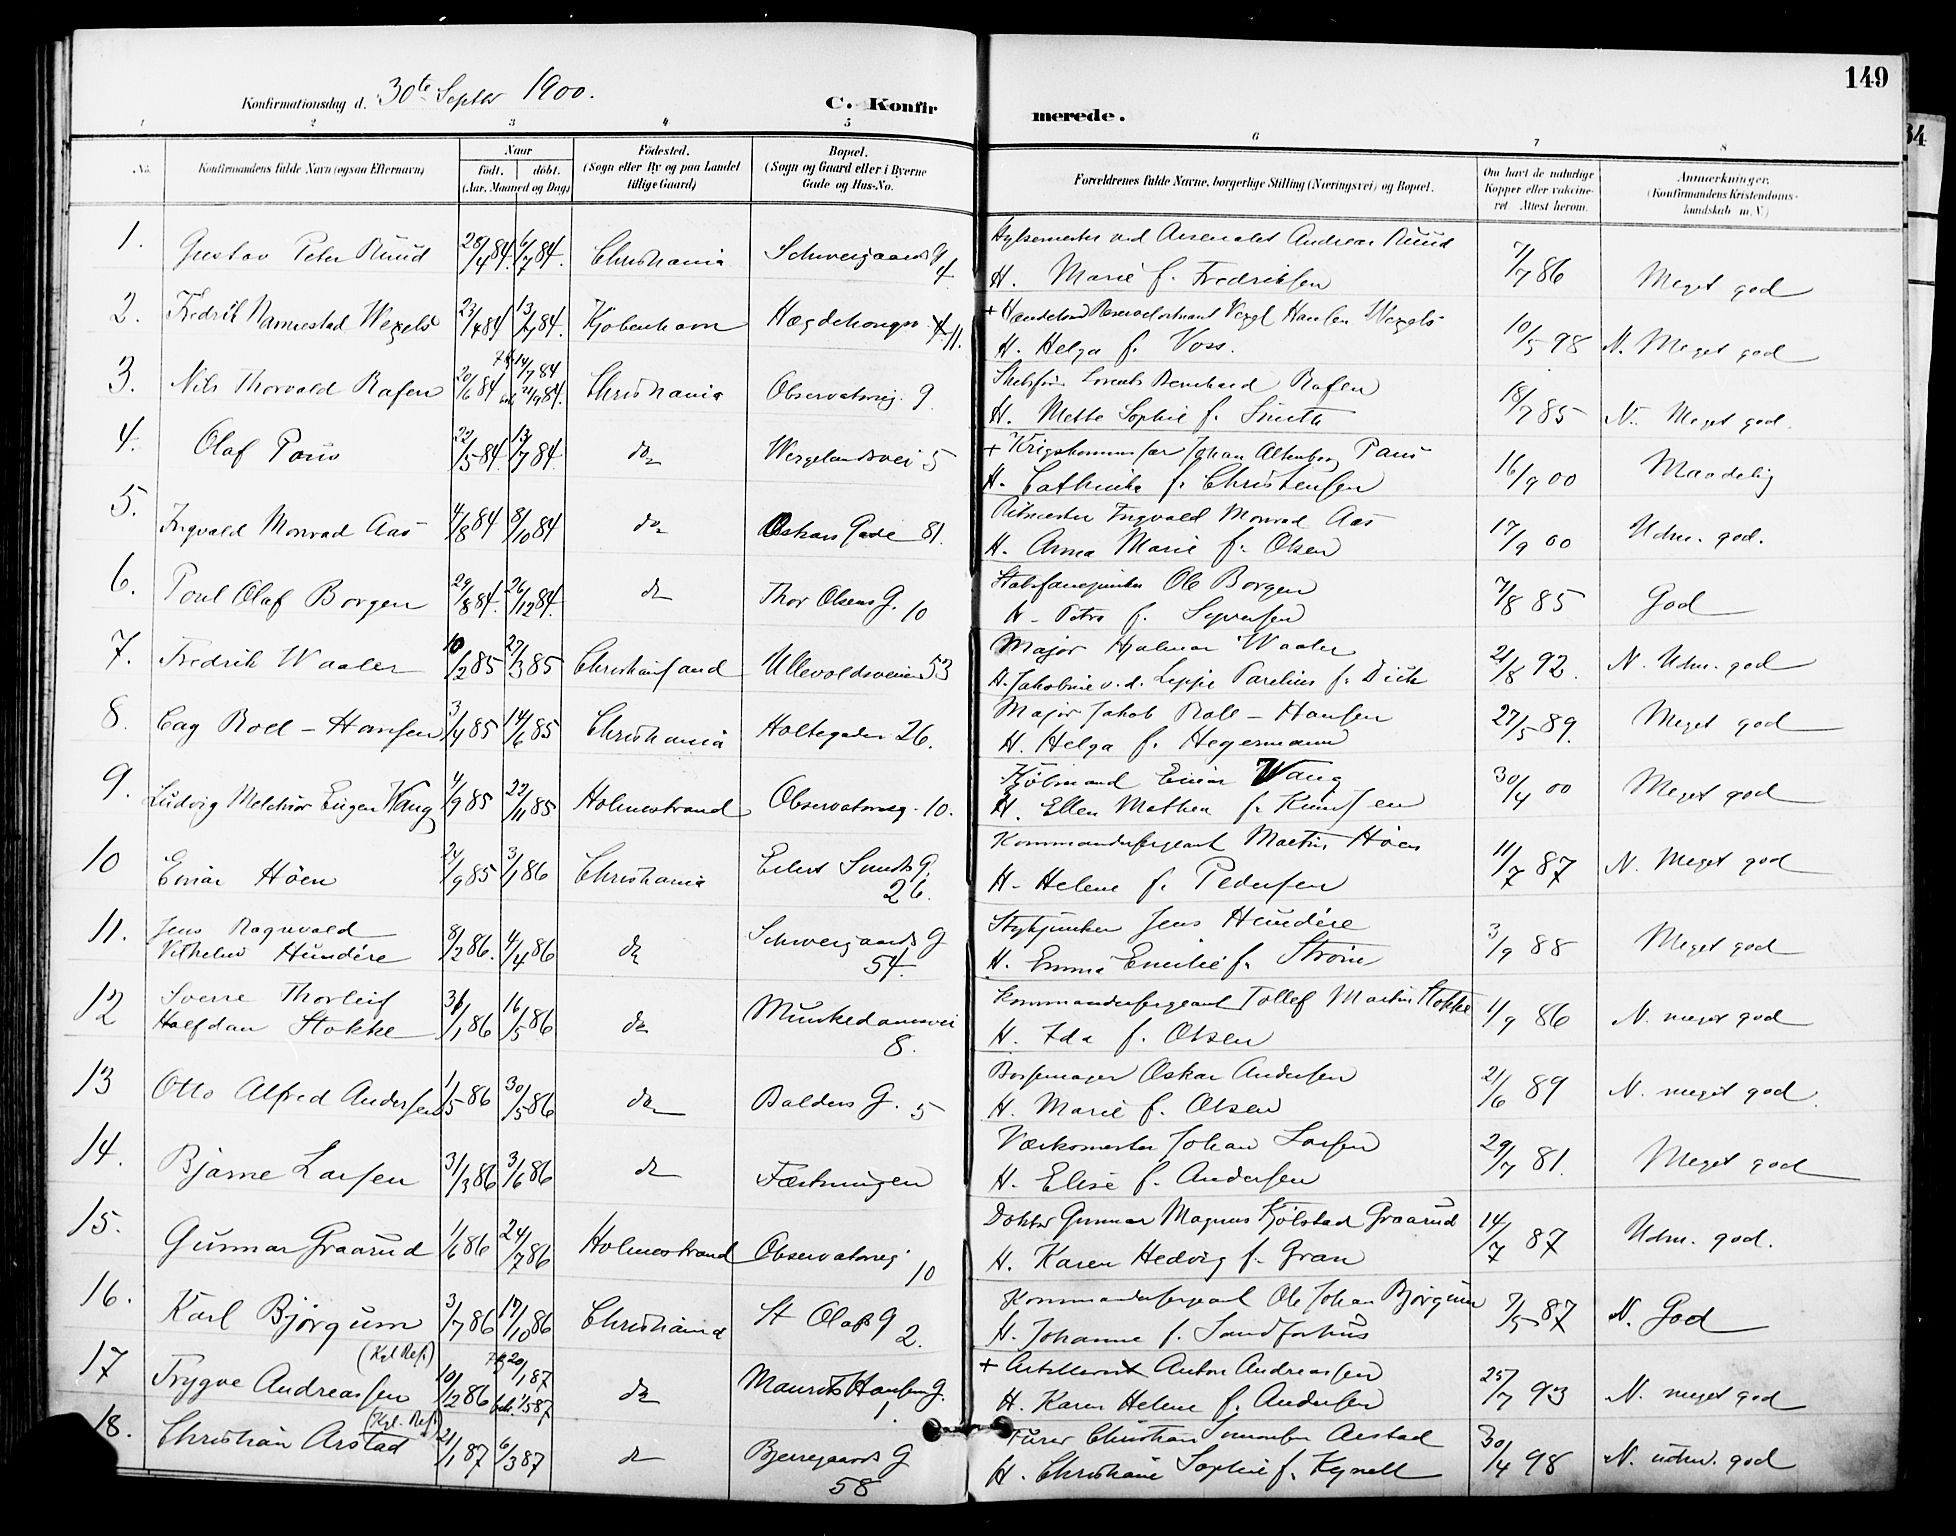 149
Konfirmationsdag d. 30te Septbr 1900.
C. Konfirmerede.
1 2 3 4 5 6 7 8
No. Konfirmandens fulde Navn (ogsaa Efternavn) Naar født. døbt. (Aar, Maaned og Dag) Fødested. (Sogn eller By og paa Landet tillige Gaard) Bopæl. (Sogn og Gaard eller i Byerne Gade og Hus-No. Forældrenes fulde Navne, borgerlige Stilling (Næringsvei) og Bopæl. Om havt de naturlige Kopper eller vakcineret. Attest herom. Anmærkninger. (Konfirmandens Kristendomskundskab m. V.)
1. Gustav Peter Ruud 28/4 84. 6/7 84. Christiania Schweigaards G 4. ved Arsenalet Andreas Ruud
H. Marie f. Fredriksen 7/7 86 Meget god
2. Fredrik Wexels 23/4 84 13/7 84. Kjøbenhavn Hægdehougsv. 11. Hansen Wexels
H. Helga f. Voss. 10/5 98 N. Meget god
3. Nils Thorvald Rafen 20/6 84 14/7 84 21/9 84. Christiania Observatorieg. 9. Bernhard Rafen
H. Mette Sophie f. Smith 18/7 85 N. Meget god.
4. Olaf Paus 22/5 84. 13/7 84. do Wergelandsvei 5 + Krigskommissær Johan Altenborg Paus
H. Cathinka f. Christensen 16/9 00 Maadelig
5. Ingvald Monrad Aas 4/8 84 8/10 84 do Oskars Gade 81. Ritmester Ingvald Monrad Aas
H. Anna Marie f. Olsen 17/9 00 Udm. god.
6. Poul Olaf Borgen 29/8 84. 26/12 84. do Thor Olsens G. 10 Stabsfanejunker Ole Borgen
H. Petra f. Syversen 7/8 85 God
7. Fredrik Waaler 10/2 85 27/3 85 Christiansand Ullevoldsveien 53 Major Hjalmar Waaler
H. Jakobine v. d. Lippe Parelius f. Dick 21/8 92. N. Udm. god
8. Cay Roll-Hansen 3/4 85 14/6 85 Christiania Holtegaden 26. Major Jakob Roll-Hansen
H. Helga f. Hegermann 27/5 89. Meget god
9. Ludvig Melchior Eugen Wang 4/9 85 22/11 85 Holmestrand Observatorieg. 10. Kjøbmand Einar Wang
H. Ellen Mathea f. Knudsen 30/4 00 Meget god
10 Einar Höen 24/9 85 3/1 86 Christiania Eilert Sundts G. 26. Kommandersergeant Martin Höen
H. Helene f. Pedersen 11/7 87 N. Meget god
11. Jens Ragnvald Vilhelm Hundére 8/2 86. 4/4 86 do Schweigaards G 54. Stykjunker Jens Hundére
H. Emma Emilie f. Ström 3/9 88 Meget god
12 Sverre Thorleif Halfdan Stokke 31/1 86 16/5 86 do Munkedamsvei 8. Kommandersergeant Tollef Martin Stokke
H. Ida f. Olsen 1/9 86 N. meget god
13 Otto Alfred Andersen 1/5 86 30/5 86 do Balders G. 5 Børsemager Oskar Andersen
H. Marie f. Olsen 21/6 89 N. meget god.
14. Bjarne Larsen 3/3 86 3/6 86 do Fæstningen Værkmester Johan Larsen
H. Elise f. Andersen 29/7 81. Meget god
15. Gunnar Graarud 1/6 86 24/7 86 Holmestrand Observatorieg 10 Doktor Gunnar Magnus Kjølstad Graarud
H. Karen Hedvig f. Gran 14/7 87 Udm. god.
16. Karl Bjørgum 3/7 86 17/10 86 Christiania St Olafs G 2. Kommandersergeant Ole Johan Bjørgum
H. Johanne f. Sandforhus 7/5 87 N. God
17 Trygve Andreassen (Kgl Res.) 10/12 86 20/1 87 1/5 87 do Maurits Hansens G. 1. + Artillerist Anton Andreassen
H. Karen Helene f. Andersen 25/7 93 N. meget god
18. Christian Arstad (Kgl. Res.) 21/1 87 6/3 87 do Bjerregaards G 58 Furer Christian Arstad
H. Christiane Sophie f. Kynell 30/4 98 N. udm. god